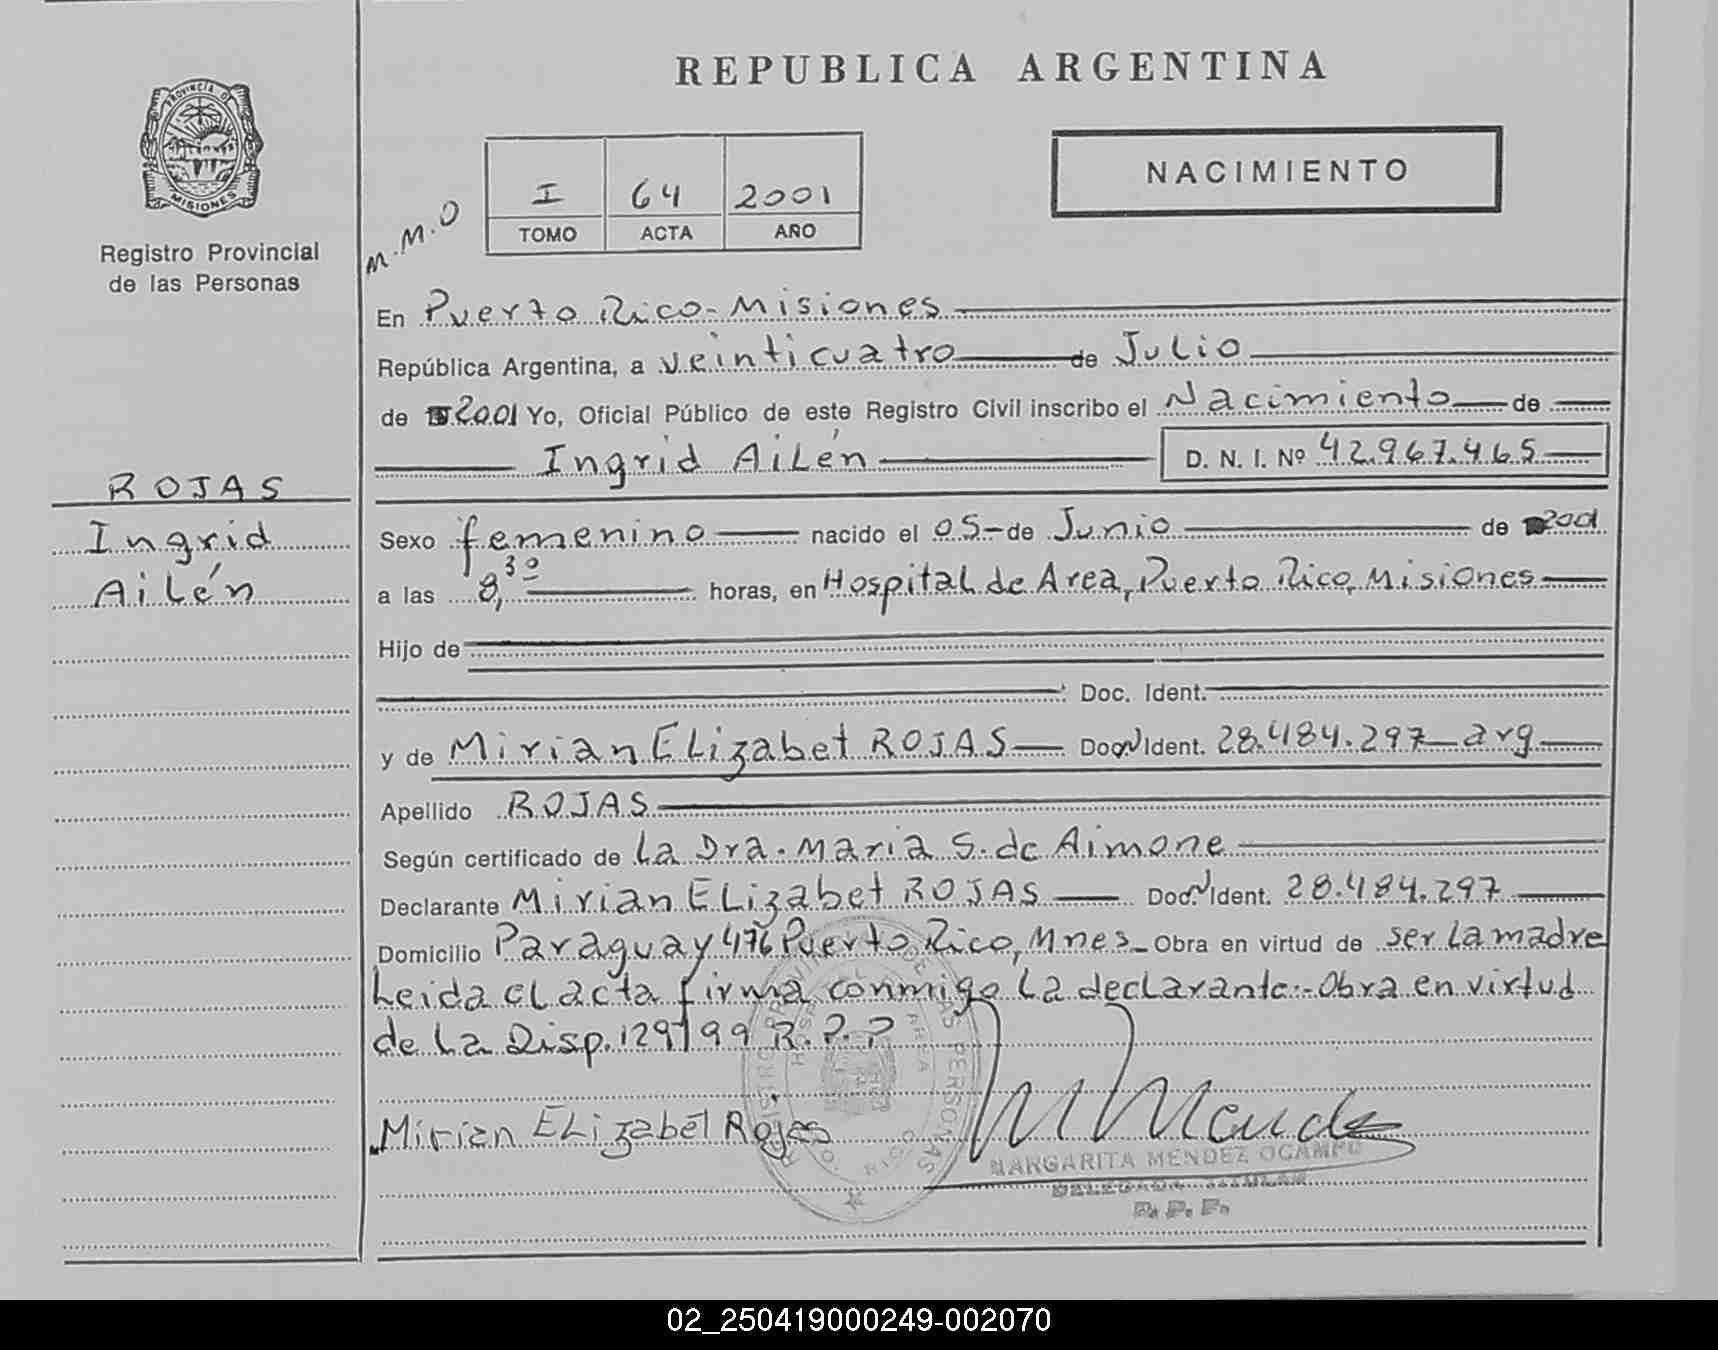 REPUBLICA ARGENTINA
PROVINCIA DE
MISIONES
Registro Provincial
de las Personas
NACIMIENTO
M.M.O
I 64 2001
TOMO ACTA AÑO
En Puerto Rico - Misiones
República Argentina, a veinticuatro de Julio
de 2001 Yo, Oficial Público de este Registro Civil inscribo el Nacimiento de
Ingrid Ailén D. N. I. Nº 42.967.465
ROJAS
Ingrid
Ailén
Sexo femenino nacido el 05 - de Junio de 2001
a las 8,30 horas, en Hospital de Area, Puerto Rico, Misiones
Hijo de
Doc. Ident.
y de Mirian Elizabet ROJAS Doc. Ident. 28.484.297 arg
Apellido ROJAS
Según certificado de La Dra. Maria S. de Aimone
Declarante Mirian Elizabet ROJAS Doc. Ident. 28.484.297
Domicilio Paraguay 476 Puerto Rico, Mnes - Obra en virtud de ser la madre
Leida el acta firma conmigo la declarante.- Obra en virtud
de la Disp. 129/99 R.P.P
Mirian Elizabet Rojas
MARGARITA MENDEZ OCAMPO
DELEGADA TITULAR
R. P. P.
02_250419000249-002070